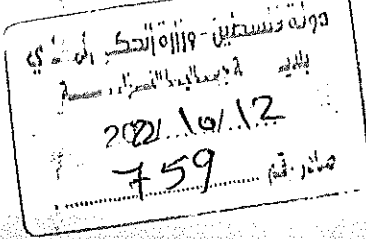 دولة فلسطين - وزارة الحكم المحلي
بلدية
2021 10/12
صادر رقم 759